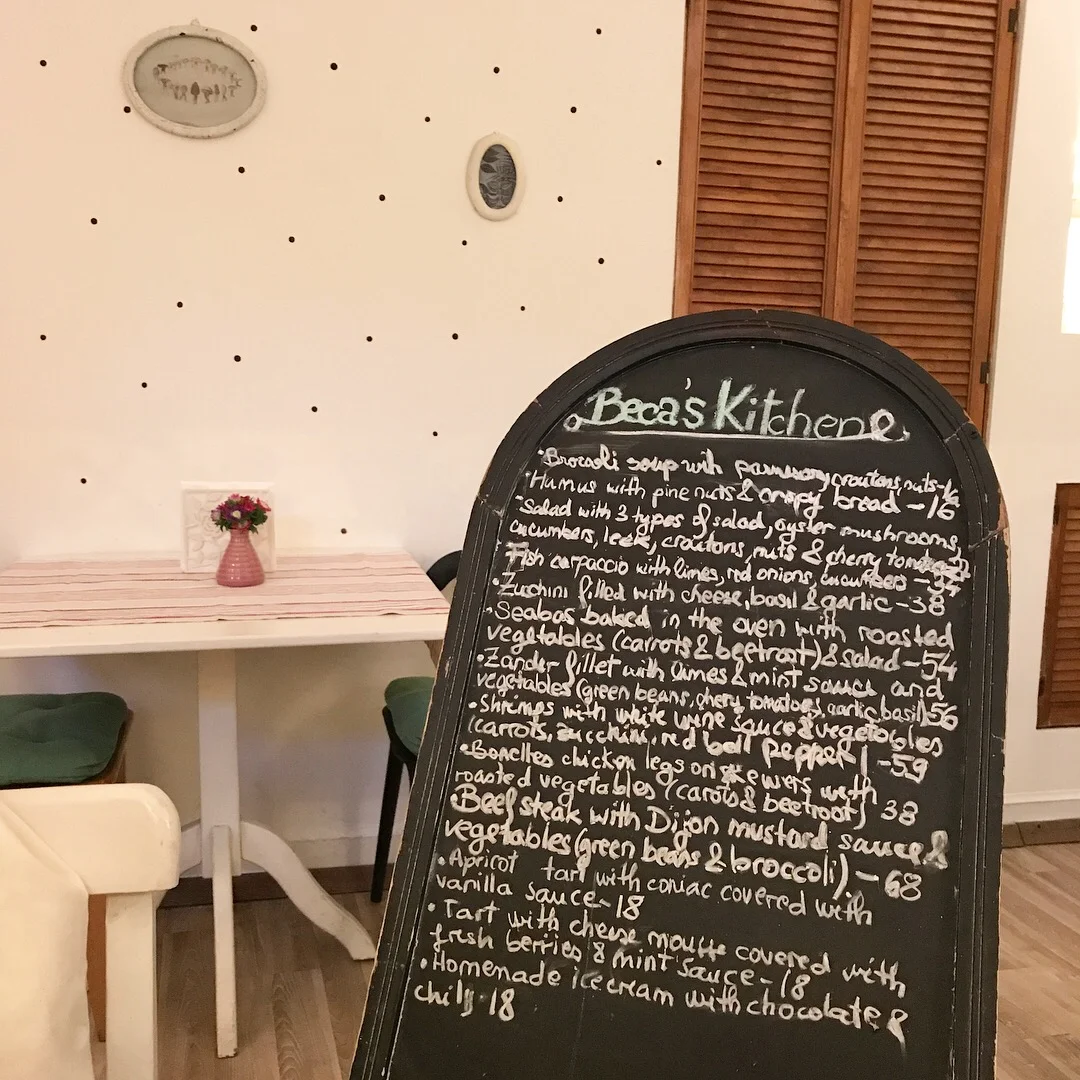 Beca's Kitchen
• Brocoli soup with croutons, nuts-16
• Humus with pine nuts & crispy bread - 16
• Salad with 3 types of salad, oyster mushrooms,
cucumbers, leek, croutons, nuts & cherry
Fish carpaccio with limes, red onions, cucumbers -
• Zucchini filled with cheese, basil & garlic - 38
• Seabas baked in the oven with roasted
vegetables (carrots & beetroot) & salad - 54
• Zander fillet with limes & mint sauce and
vegetables (green beans, chery tomatoes, garlic, basil) 56
• Shrimps with white wine sauce & vegetables
(carrots, zucchini, red bell pepper) - 59
• Bonelles chicken legs on skewers with
roasted vegetables (carots & beetroot) 38
Beef steak with Dijon mustard sauce &
vegetables (green beans & broccoli) - 68
• Apricot tart with coniac covered with
vanilla sauce - 18
• Tart with cheese mousse covered with
fresh berries & mint sauce - 18
• Homemade icecream with chocolate &
chilly 18